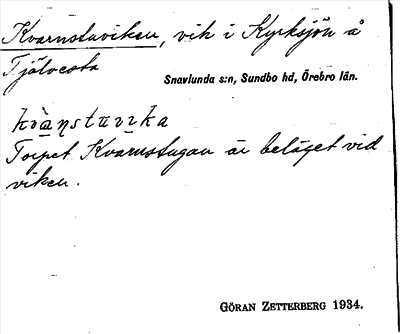 Kvarnstuviken, vik i Kyrksjön å
Tjälvesta
Snavlunda s:n, Sundbo hd, Örebro län.
kvàn̥stuvıka
Torpet Kvarnstugan är beläget vid
viken.
GÖRAN ZETTERBERG 1934.